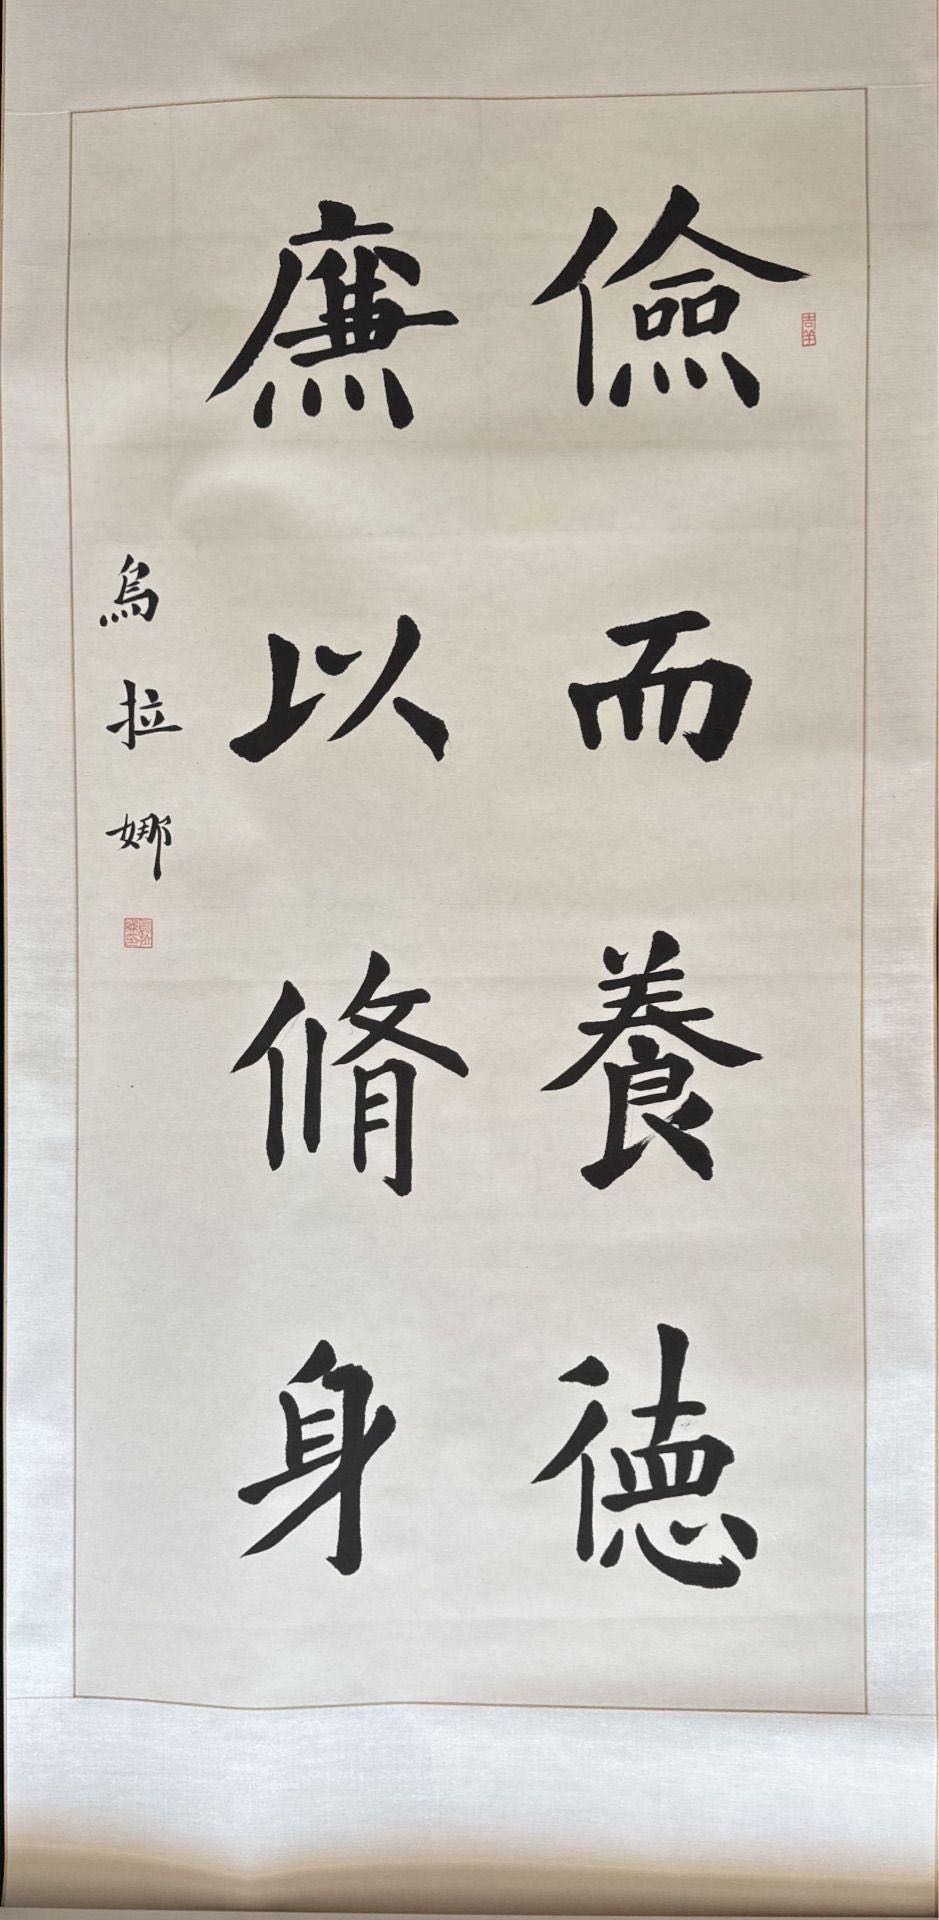 儉而養德
廉以脩身
烏拉娜